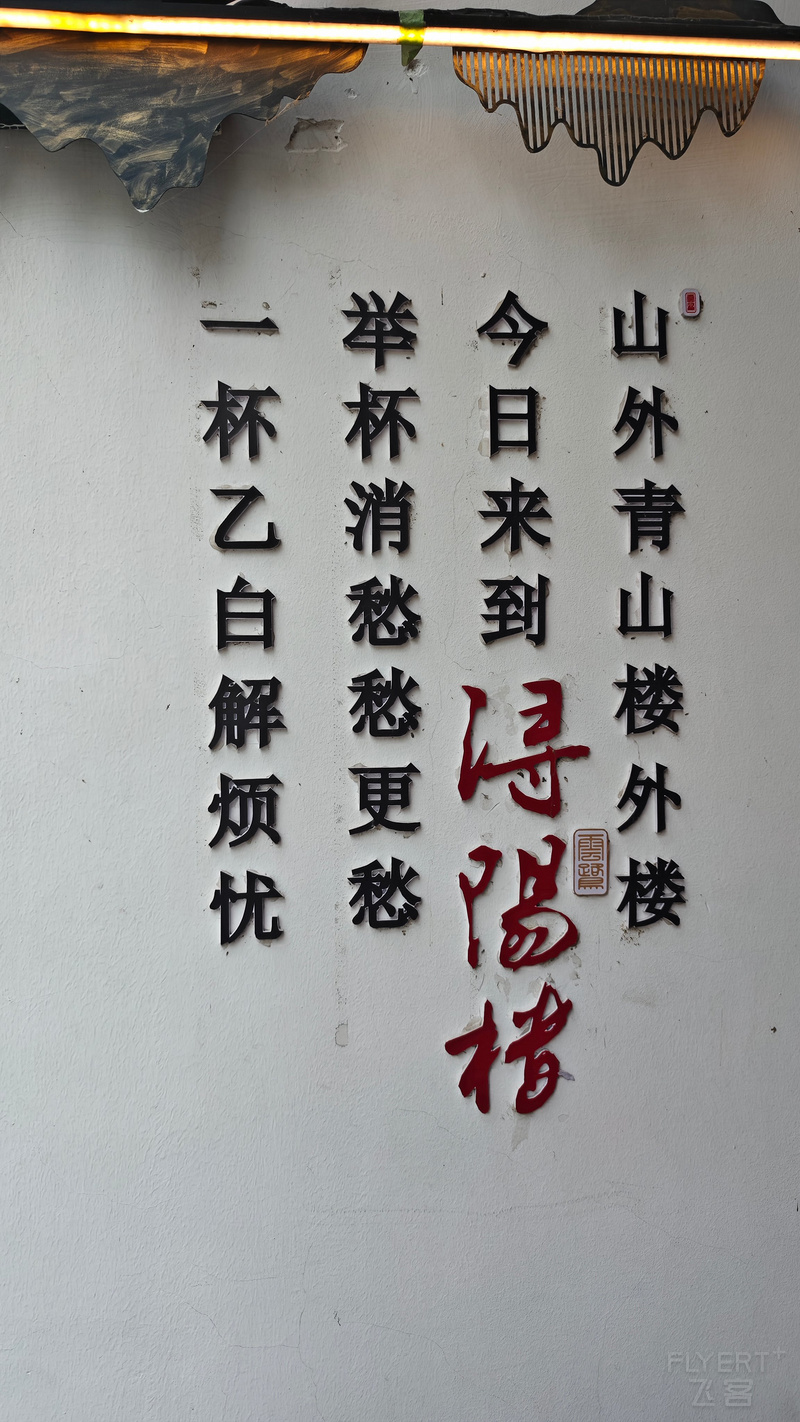 山外青山楼外楼
今日来到浔陽楼
举杯消愁愁更愁
一杯乙白解烦忧
FLYERT+
飞客